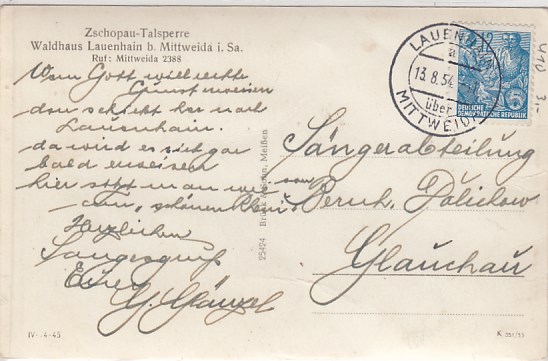 Zschopau-Talsperre
Waldhaus Lauenhain b. Mittweida i. Sa.
Ruf: Mittweida 2388
Wem Gott will rechte
Gunst erweisen
den schickt er nach
Lauenhain.
da wird es sich gar
bald erweisen
hier sitzt man wie
am "schönen Rhein"
Herzlichen
Sangesgruß
Euer
G. Gänzel
LAUENHAIN
13.8.54
über
MITTWEIDA
DEUTSCHE
DEMOKRATISCHE REPUBLIK
6
410
3,-
Sängerabteilung
Bernh.
Glauchau
25424 Meißen
IV-.4-45
K 351/53